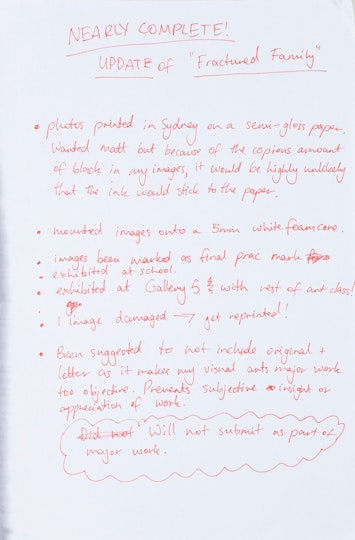 NEARLY COMPLETE!
UPDATE of "Fractured Family"
• photos printed in Sydney on a semi-gloss paper.
Wanted matt but because of the copious amount
of black in my images, it would be highly unlikely
that the ink would stick to the paper.
• mounted images onto a 5mm white foamcore.
• images been marked as final prac mark
• exhibited at school.
• exhibited at Gallery 5 with rest of art class!
• 1 image damaged → get reprinted!
• Been suggested to not include original +
letter as it makes my visual arts major work
too objective. Prevents subjective insight or
appreciation of work.
Did not Will not submit as part of
major work.